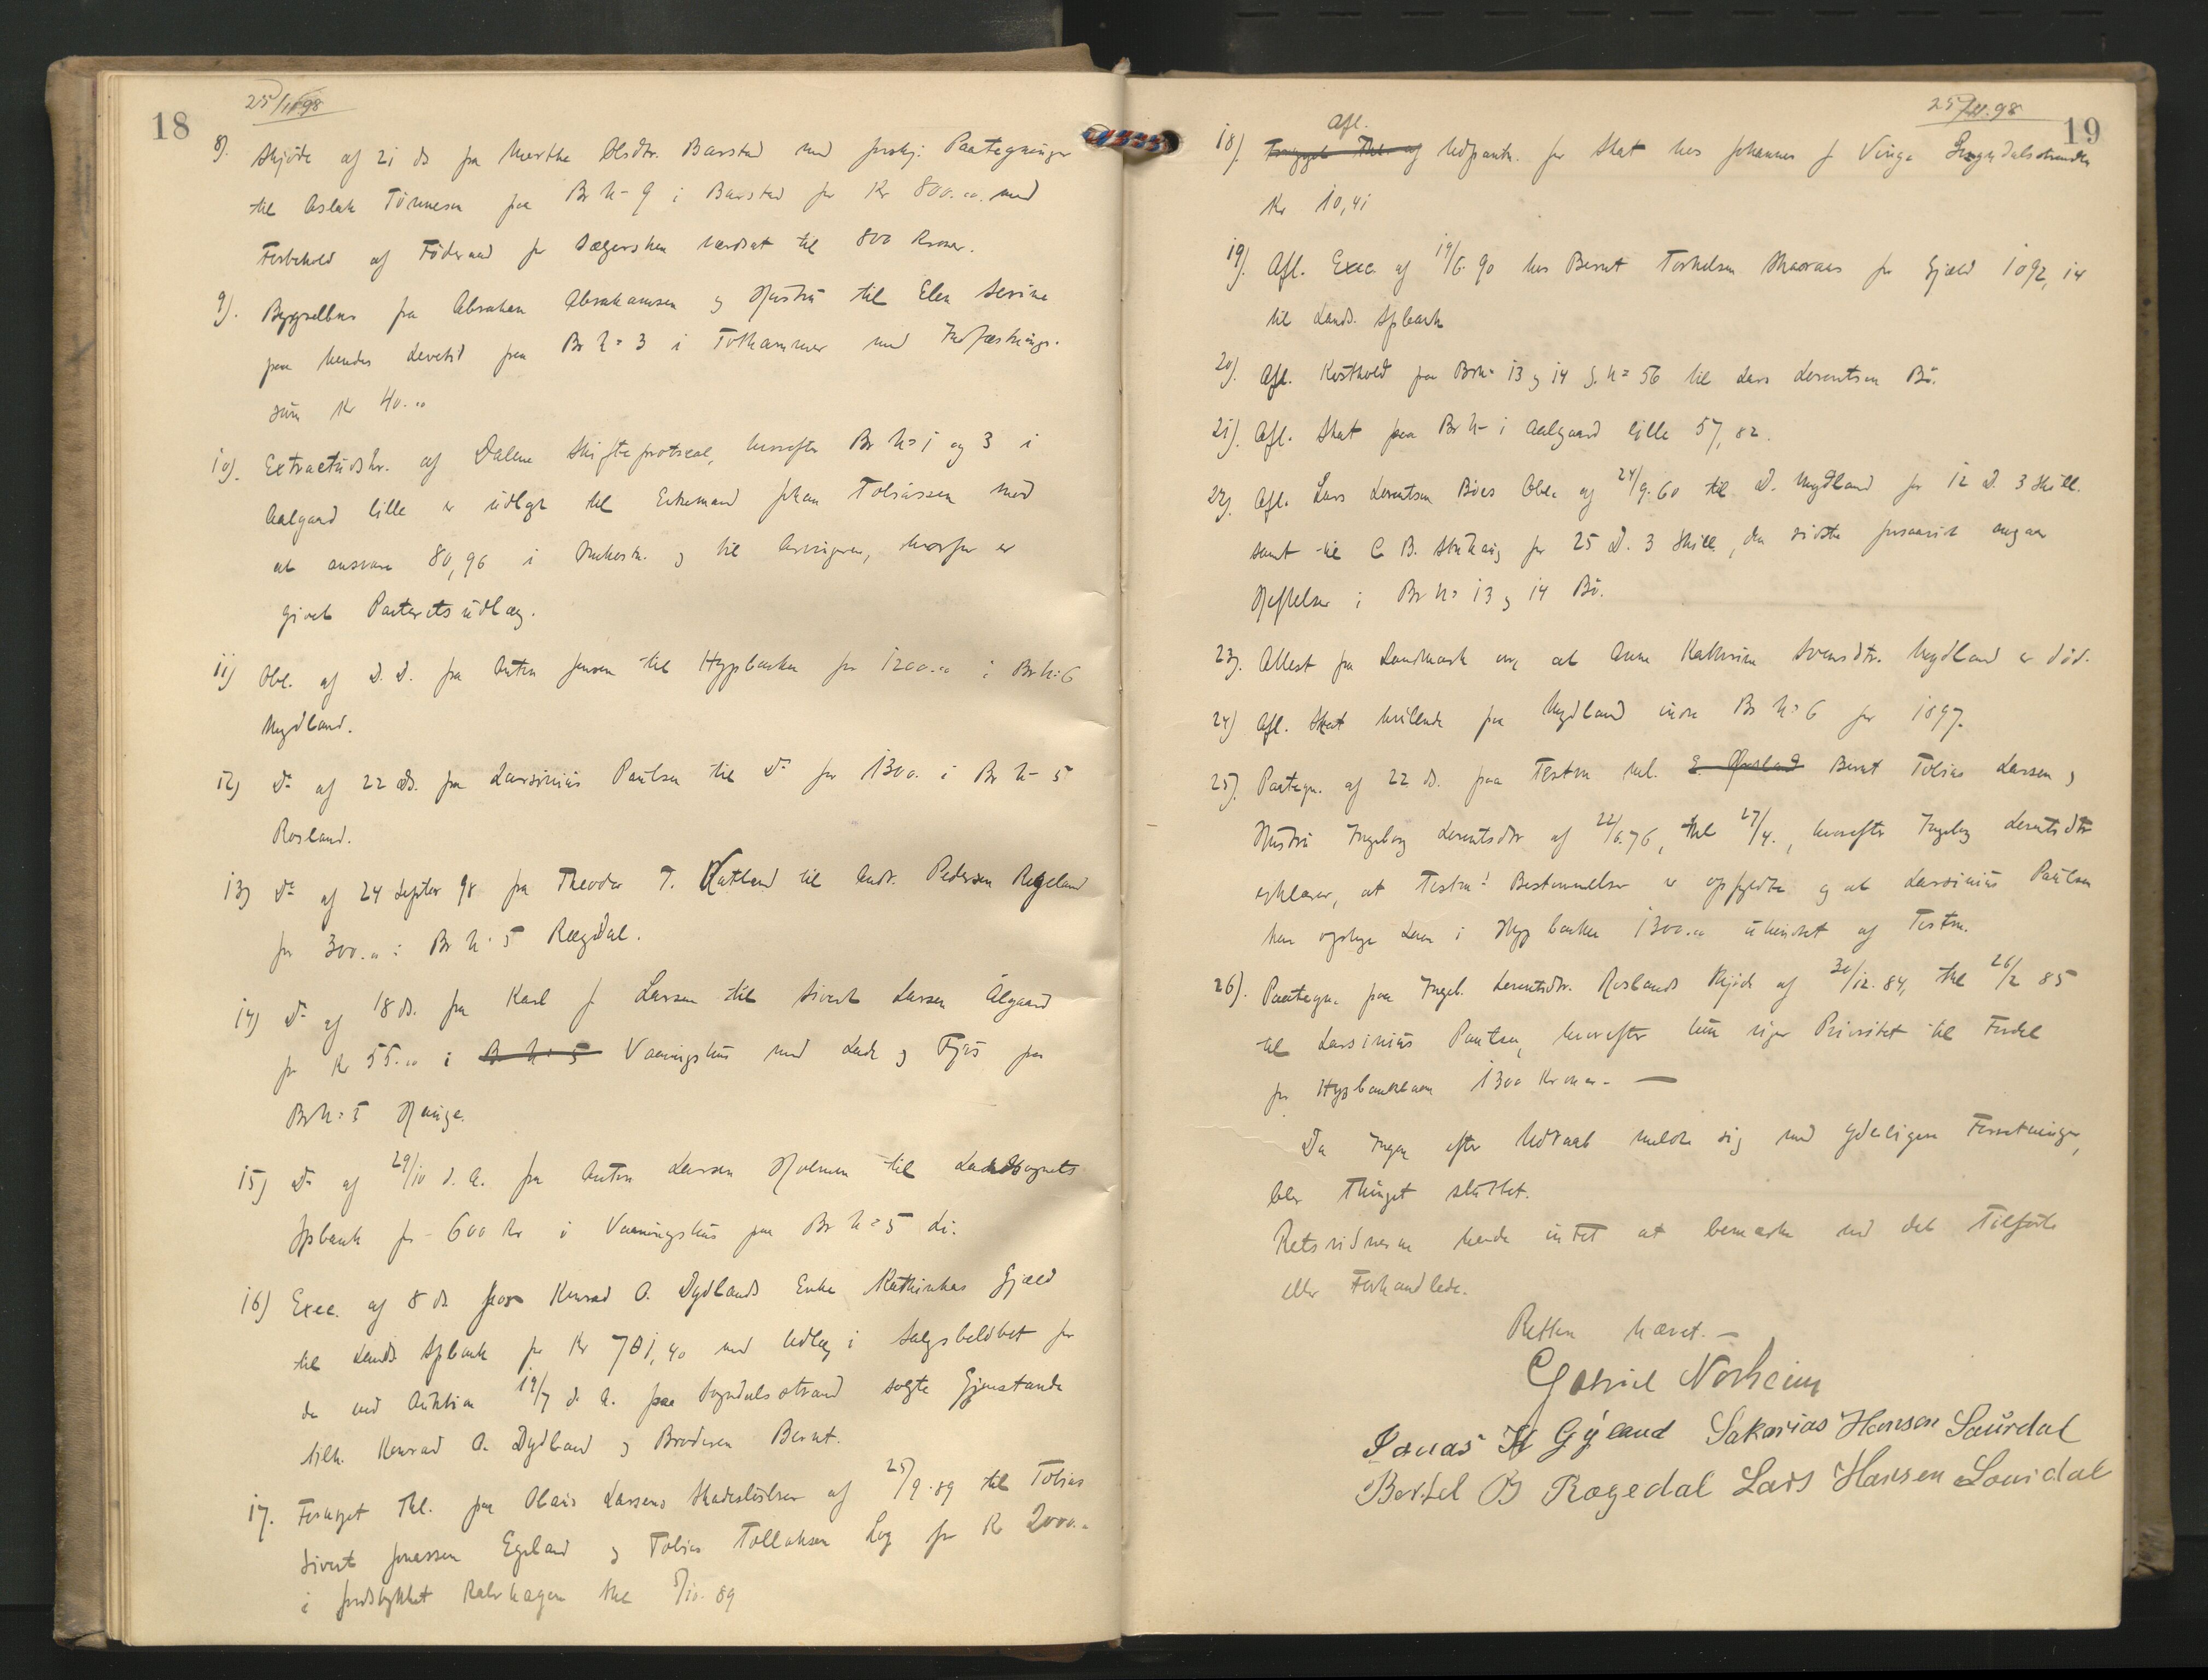 18
25/11.98
8). Skjöde af 21 ds fra Marthe Olsdtr. Barstad med forskj. Paategninger
til Aslak Tönnesen paa Br n- 9 i Barstad for Kr 800.00. med
Forbehold af Föderaad for Sælgersken værdsat til 800 Kroner.
9). Bygselbrev fra Abraham Abrahamsen og Hustru til Elen Serine
paa hendes Levetid paa Br n= 3 i Tothammer med Indfæstnings-
sum Kr 40.00
10). Extractudskr. af Dalene Skifteprotocol, hvorefter Br n= 1 og 3 i
Aalgaard lille er udlagt til Enkemand Johan Tobiassen mod
at ansvare 80,96 i Omkostn. og til Arvingerne, hvorfor er
givet Panterets udlæg.
11) Obl. af D. D. fra Anton Jensen til Hypbanken for 1200.00 i Br n: 6
Mydland.
12) Do af 22 ds. fra Larsinius Paulsen til Do for 1300. i Br n- 5
Rosland.
13) Do af 24 Septbr 98 fra Theodor T. Hatland til Andr. Pedersen Regeland
for 300.00 i Br n. 5 Rægedal.
14) Do af 18 ds. fra Karl J Larsen til Sivert Larsen Ålgaard
for Kr 55.00 i Br n. 5 Vaaningshus med Lade og Fjøs paa
Br n= 5 Hauge.
15) Do af 29/10 d. A. fra Anton Larsen Holmen til Landsognets
Spbank for 600 Kr i Vaaningshus paa Br n= 5 Li.
16) Exec. af 8 ds. hos Konrad O. Dydlands Enke Kathinkas Gjæld
til Lands. Spbank for Kr 701,40 med Udlæg i Salgsbelöbet for
de ved Auktion 19/7 d. A. paa Sogndalsstrand solgte Gjenstande
tilh. Konrad O. Dydland og Broderen Bernt.
17. Fornyet Thl. paa Olaus Larsens Skadeslösbrev af 25/9.89 til Tobias
Sivert Jonassen Egeland og Tobias Tollaksen Log for Kr 2000.-
i Jordstykket Kalvhagen thl 5/10.89
25/11.98
19
18). Fornyet Thl. af Afl. Udpantn. for Skat hos Johannes J Vinge Sogndalsstranden
Kr 10,41
19). Afl. Exec. af 19/6.90 hos Bernt Torkelsen Skaaraas for Gjæld 1092,14
til Lands. Spbank
20). Afl. Kosthold paa Br n= 13 og 14 G. n= 56 til Lars Lorentsen Bö.
21). Afl. Skat paa Br n- 1 Aalgaard lille 57,82.
22). Afl. Lars Lorentsen Böes Obl. af 24/9.60 til D. Mydland for 12 D. 3 Skill.
samt til C. B. for 25 D. 3 Skill., den sidste forsaavidt angaar
Heftelser i Br n= 13 og 14 Bö.
23). Attest fra Lendmark om, at Anne Kathrine Svensdtr. Mydland er död.
24) Afl. Skat hvilende paa Mydland indre Br n= 6 for 1897.
25). Paategn. af 22 ds. paa Testm. mel. E. Rosland Bernt Tobias Larsen og
Hustru Ingeborg Lorentsdtr af 22/6.76, thl 27/4., hvorefter Ingeborg Lorentsdtr
erklærer, at Testm! Bestemmelser er opfyldte og at Larsinius Paulsen
kan optage Laan i Hypbanken 1300.00 uhindret af Testm.
26). Paategn. paa Ingeb. Lorentsdtr. Roslands Skjöde af 30/12.84, thl 26/2 85
til Larsinius Paulsen, hvorefter hun viger Prioritet til Fordel
for Hypbanklaan 1300 Kroner. —
Da Ingen efter Udraab meldte sig med yderligere Forretninger,
blev Thinget sluttet.
Retsvidnerne havde intet at bemærke ved det Tilförte
eller Forhandlede.
Retten hævet. —
Gabriel Norheim
Jonas H Gyland Sakarias Hansen Saurdal
Bertel B Rægedal Lars Hansen Souidal